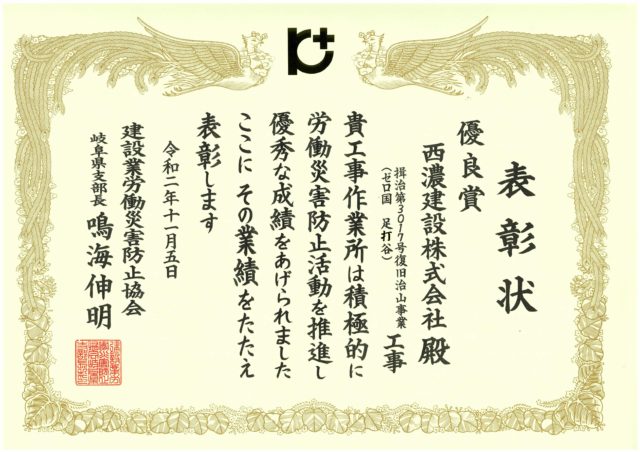 表彰状
優良賞
西濃建設株式会社 殿
揖治第3017号復旧治山事業
(ゼロ国 足打谷)
工事
貴工事作業所は積極的に
労働災害防止活動を推進し
優秀な成績をあげられました
ここに その業績をたたえ
表彰します
令和二年十一月五日
建設業労働災害防止協会
岐阜県支部長 鳴海伸明